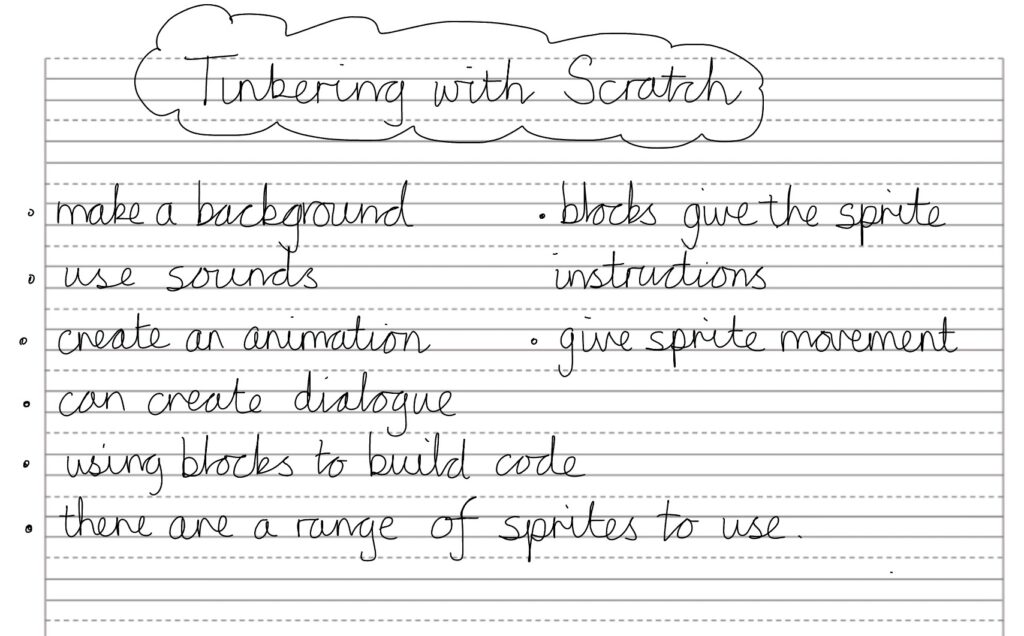 Tinkering with Scratch
• make a background
• use sounds
• create an animation
• can create dialogue
• using blocks to build code
• there are a range of sprites to use.
• blocks give the sprite
instructions
• give sprite movement